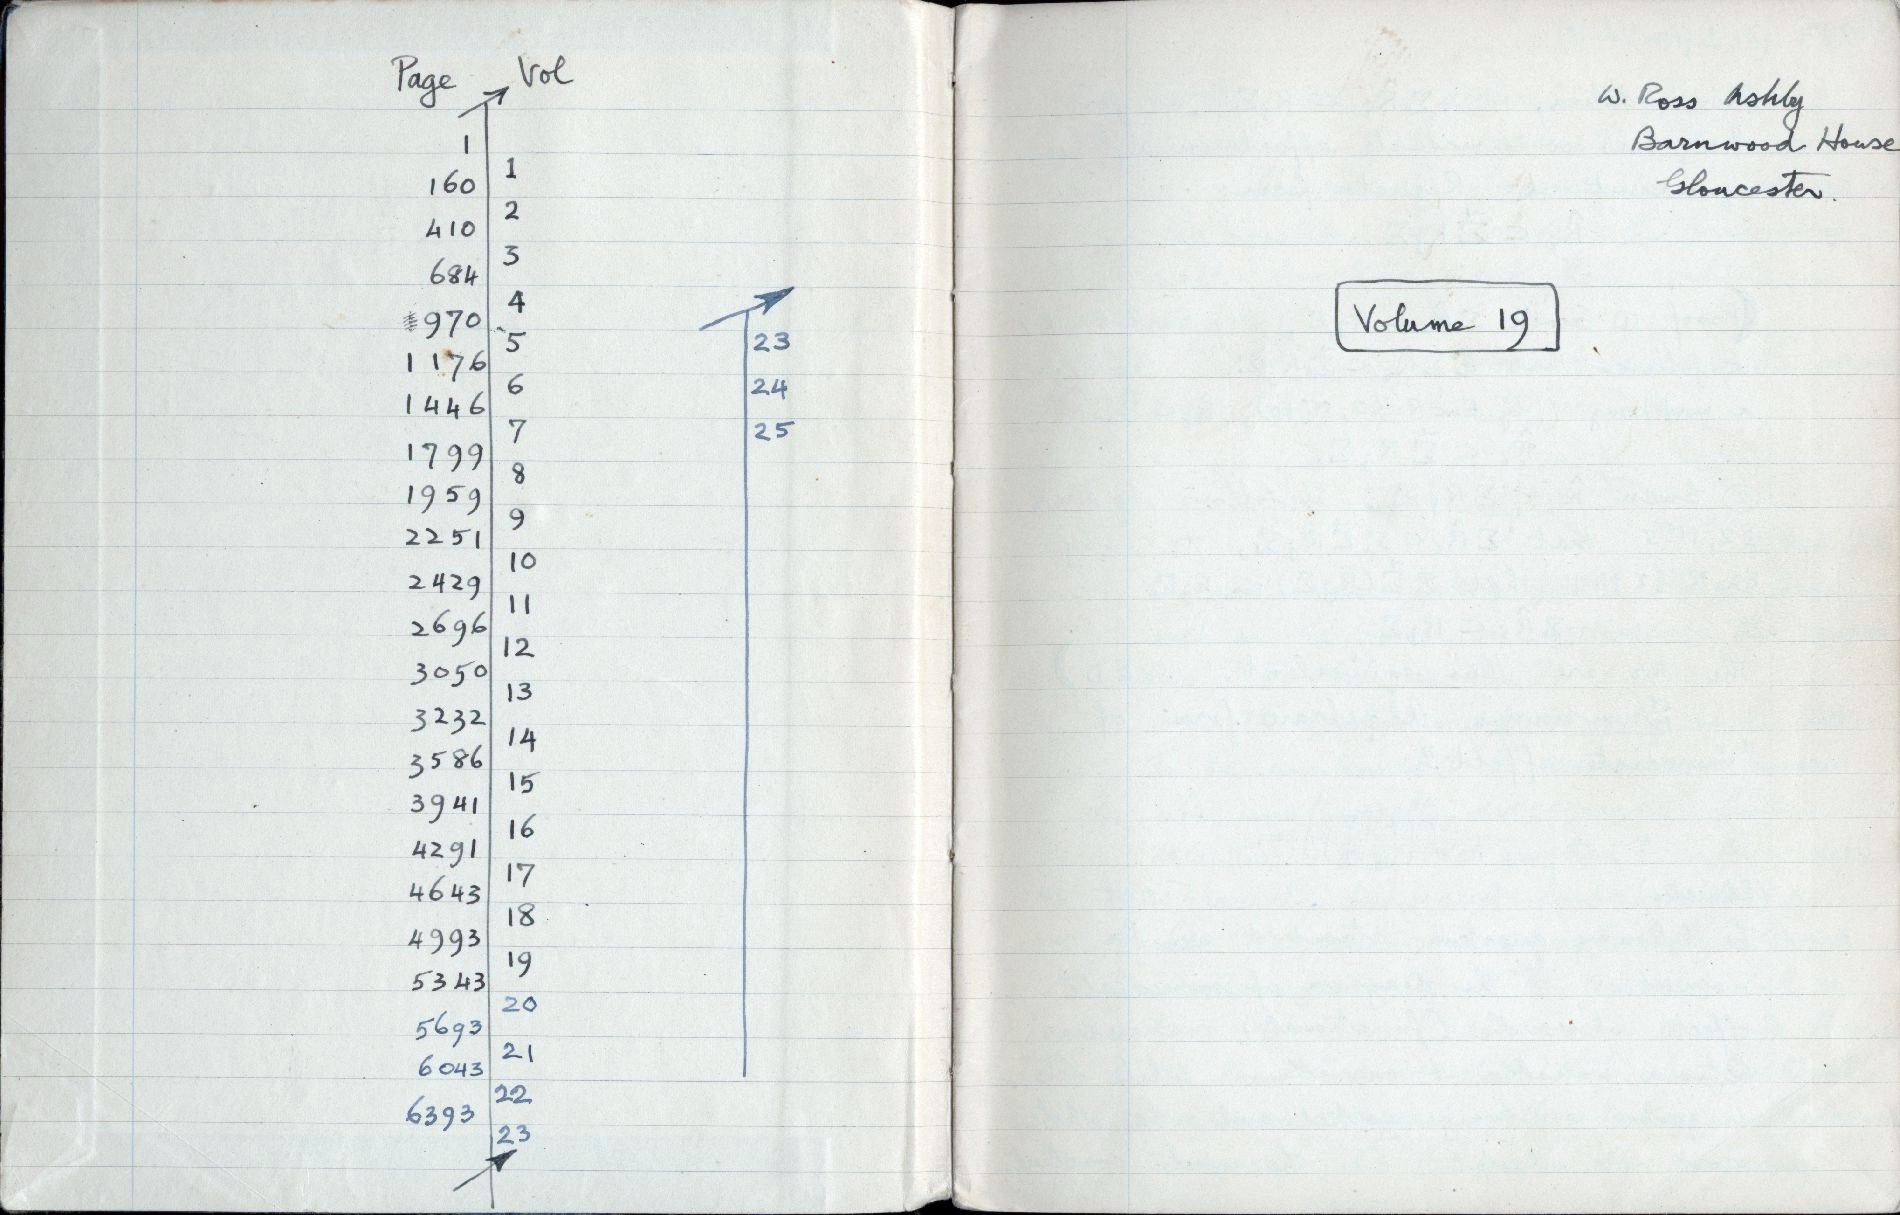 Page Vol
1
1
160
2
410
3
684
4
970
5
1176
6
1446
7
1799
8
1959
9
2251
10
2429
11
2696
12
3050
13
3232
14
3586
15
3941
16
4291
17
4643
18
4993
19
5343
20
5693
21
6043
22
6393
23
23
24
25
W. Ross Ashby
Barnwood House
Gloucester.
Volume 19